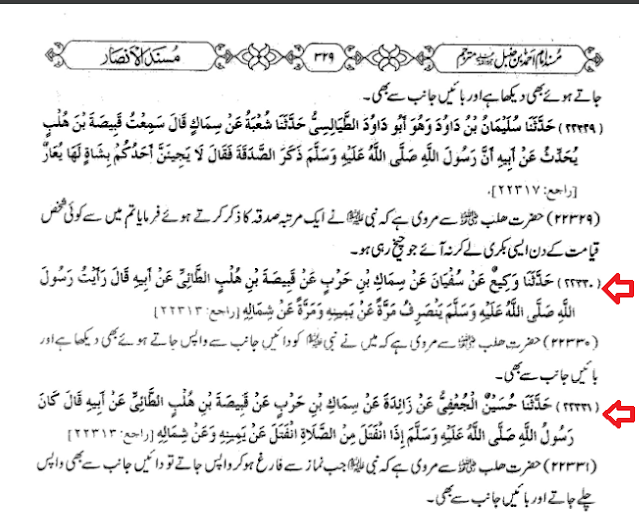 مسند امام احمد بن حنبل مترجم ۳۲۹ مسند الأنصار
جاتے ہوئے بھی دیکھا ہے اور بائیں جانب سے بھی۔
(۲۲۳۲۹) حَدَّثَنَا سُلَيْمَانُ بْنُ دَاوُدَ وَهُوَ أَبُو دَاوُدَ الطَّيَالِسِيُّ حَدَّثَنَا شُعْبَةُ عَنْ سِمَاكٍ قَالَ سَمِعْتُ قَبِيصَةَ بْنَ هُلْبٍ
يُحَدِّثُ عَنْ أَبِيهِ أَنَّ رَسُولَ اللَّهِ صَلَّى اللَّهُ عَلَيْهِ وَسَلَّمَ ذَكَرَ الصَّدَقَةَ فَقَالَ لَا يَجِيئَنَّ أَحَدُكُمْ بِشَاةٍ لَهَا يُعَارٌ
[راجع: ۲۲۳۱۷].
(۲۲۳۲۹) حضرت ھلب سے مروی ہے کہ نبی نے ایک مرتبہ صدقہ کا ذکر کرتے ہوئے فرمایا تم میں سے کوئی شخص
قیامت کے دن ایسی بکری لے کر نہ آئے جو چیخ رہی ہو۔
(۲۲۳۳۰) حَدَّثَنَا وَكِيعٌ عَنْ سُفْيَانَ عَنْ سِمَاكِ بْنِ حَرْبٍ عَنْ قَبِيصَةَ بْنِ هُلْبٍ الطَّائِيِّ عَنْ أَبِيهِ قَالَ رَأَيْتُ رَسُولَ
اللَّهِ صَلَّى اللَّهُ عَلَيْهِ وَسَلَّمَ يَنْصَرِفُ مَرَّةً عَنْ يَمِينِهِ وَمَرَّةً عَنْ شِمَالِهِ [راجع: ۲۲۳۱۳]
(۲۲۳۳۰) حضرت ھلب سے مروی ہے کہ میں نے نبی کو دائیں جانب سے واپس جاتے ہوئے بھی دیکھا ہے اور
بائیں جانب سے بھی۔
(۲۲۳۳۱) حَدَّثَنَا حُسَيْنٌ الْجُعْفِيُّ عَنْ زَائِدَةَ عَنْ سِمَاكِ بْنِ حَرْبٍ عَنْ قَبِيصَةَ بْنِ هُلْبٍ الطَّائِيِّ عَنْ أَبِيهِ قَالَ كَانَ
رَسُولُ اللَّهِ صَلَّى اللَّهُ عَلَيْهِ وَسَلَّمَ إِذَا انْفَتَلَ مِنْ الصَّلَاةِ انْفَتَلَ عَنْ يَمِينِهِ وَعَنْ شِمَالِهِ [راجع: ۲۲۳۱۳]
(۲۲۳۳۱) حضرت ھلب سے مروی ہے کہ نبی جب نماز سے فارغ ہو کر واپس جاتے تو دائیں جانب سے بھی واپس
چلے جاتے اور بائیں جانب سے بھی۔